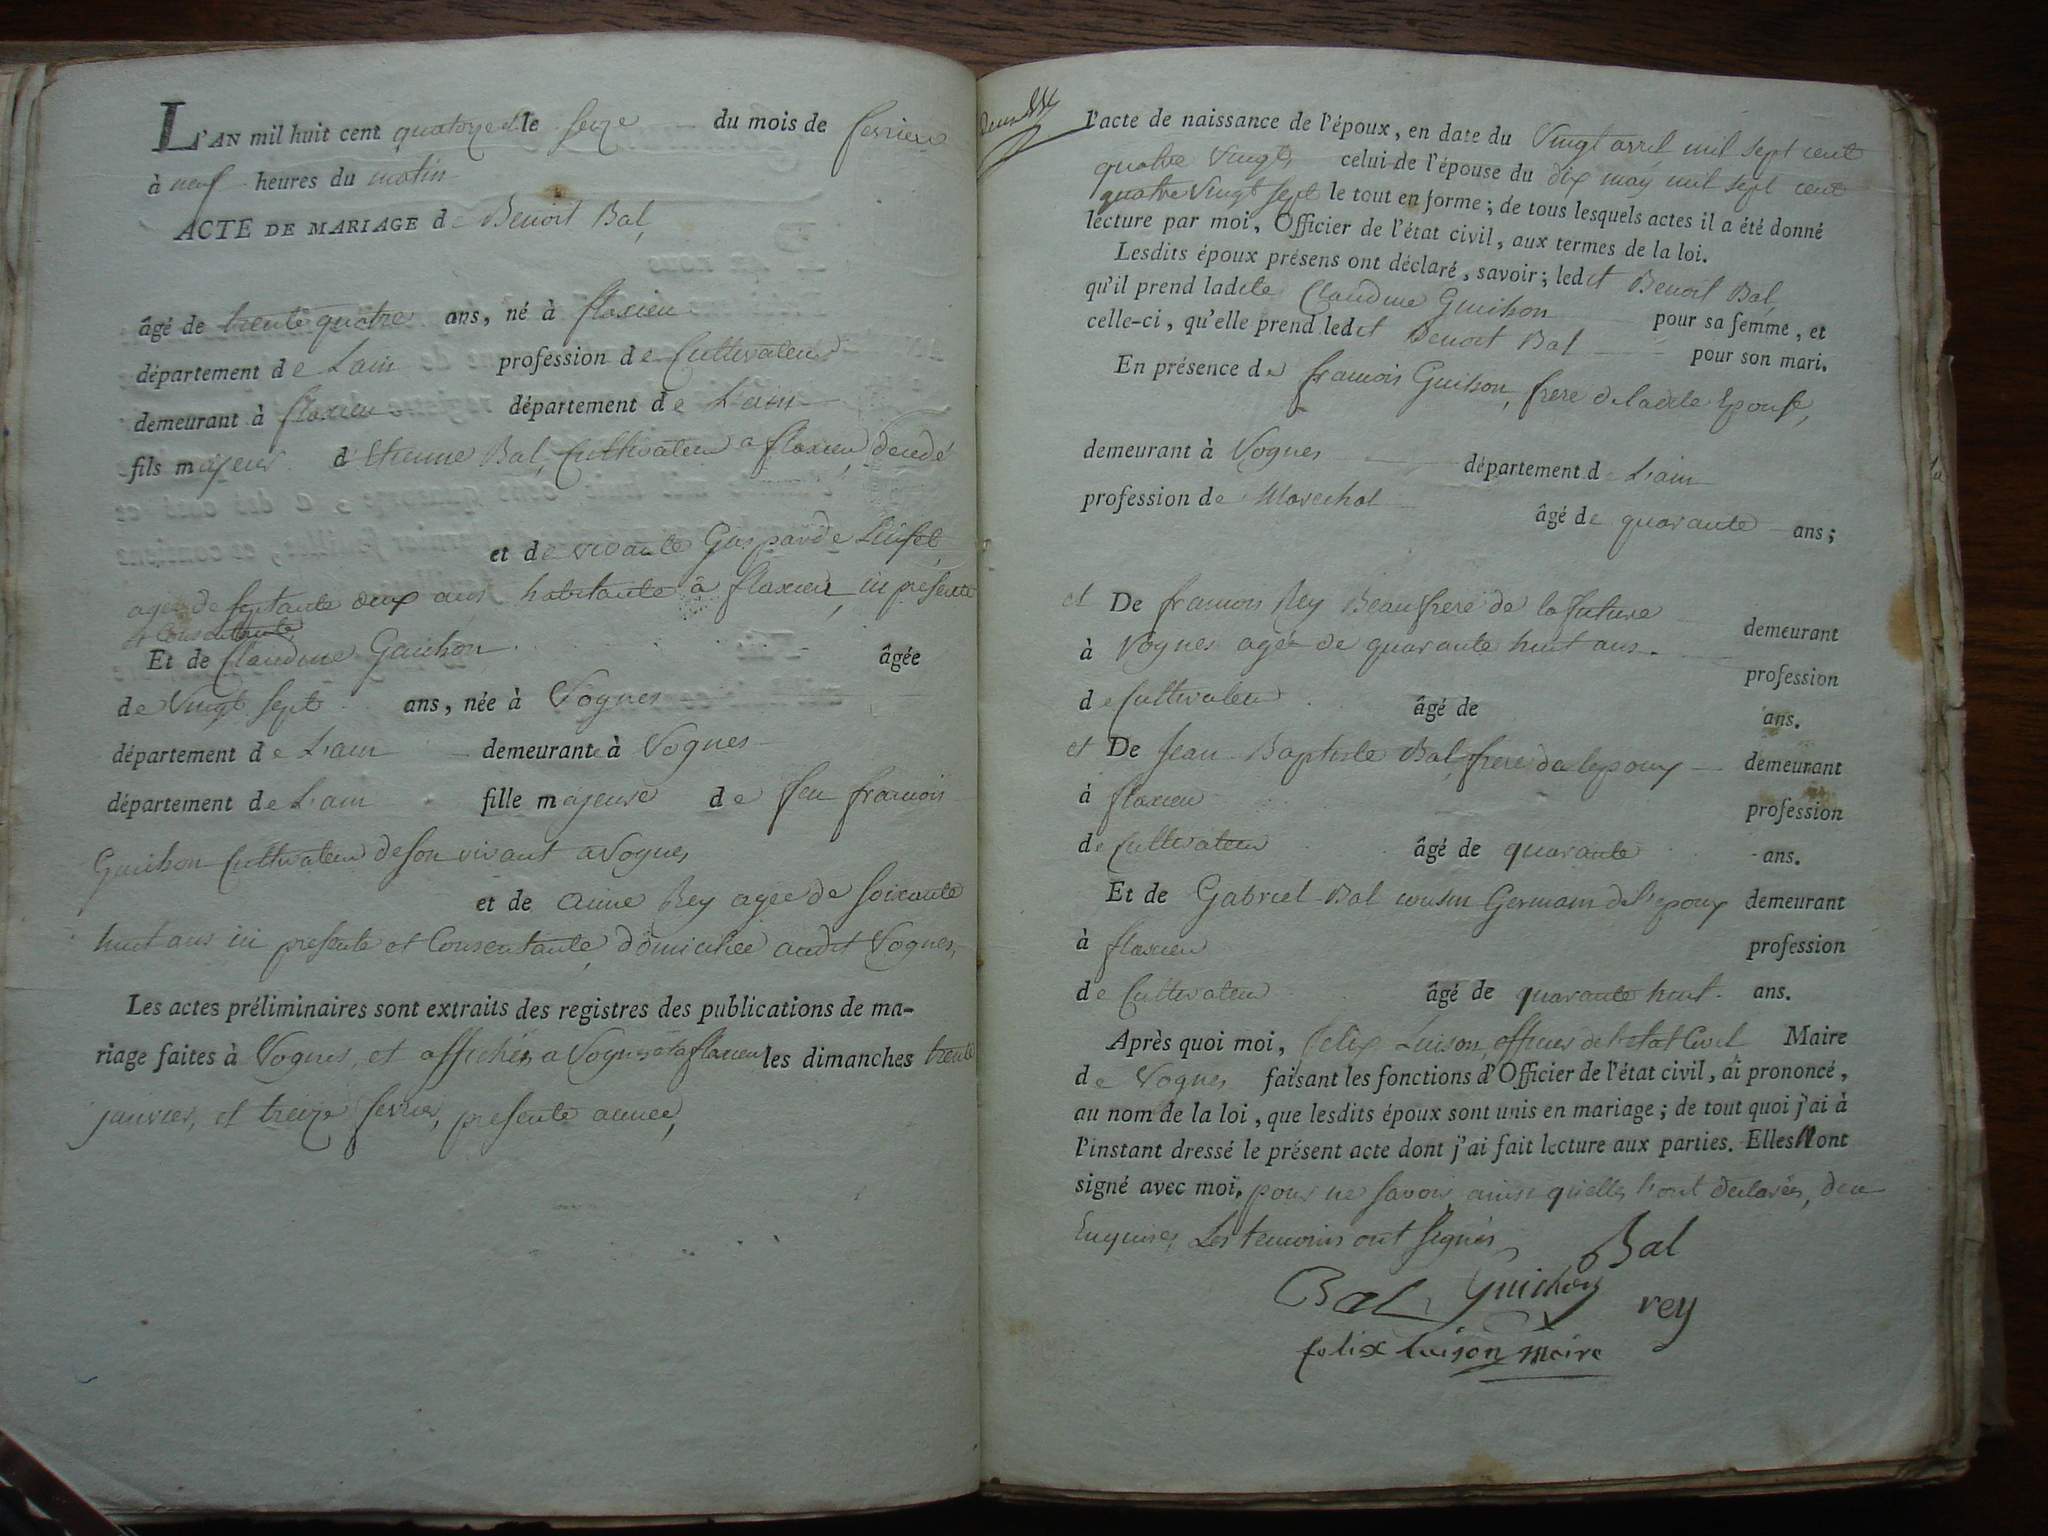 L'AN mil huit cent quatorze et le seize du mois de fevrier
à neuf heures du matin
ACTE DE MARIAGE de Benoit Bal,
âgé de trente quatre ans, né à flaxieu
département de Lain profession de Cultivateur
demeurant à flaxieu département de L'ain
fils majeur d'Etienne Bal, Cultivateur a flaxieu, decedé
et de vivante Gasparde
agee de septante deux ans habitante à flaxieu, ici presente
& Consentante
Et de Claudine Guichon âgée
de Vingt sept ans, née à Vognes
département de L'ain demeurante à Vognes
département de L'ain fille majeure de feu francois
Guichon Cultivateur de son vivant a Vognes,
et de anne Rey agee de soixante
huit ans ici presente et Consentante, domiciliee audit Vognes,
Les actes préliminaires sont extraits des registres des publications de ma-
riage faites à Vognes, et affichés a Vognes et a flaxieu les dimanches trente
janvier, et treize fevrier, presente annee,
l'acte de naissance de l'époux, en date du Vingt avril mil sept cent
quatre Vingts celui de l'épouse du dix may mil sept cent
quatre Vingt sept le tout en forme; de tous lesquels actes il a été donné
lecture par moi, Officier de l'état civil, aux termes de la loi.
Lesdits époux présens ont déclaré, savoir; ledit Benoit Bal,
qu'il prend ladite Claudine Guichon pour sa femme, et
celle-ci, qu'elle prend ledit Benoit Bal pour son mari.
En présence de francois Guichon, frere de ladite Epouse,
demeurant à Vognes département de L'ain
profession de Marechal âgé de quarante ans;
et De francois Rey Beaufrere de la future demeurant
à Vognes agé de quarante huit ans. profession
de Cultivateur âgé de ans.
et De Jean Baptiste Bal, frere de lepoux demeurant
à flaxieu profession
de Cultivateur âgé de quarante ans.
Et de Gabriel Bal cousin Germain de l'epoux demeurant
à flaxieu profession
de Cultivateur âgé de quarante huit ans.
Après quoi moi, felix Luison, officier de l'etat Civil Maire
de Vognes faisant les fonctions d'Officier de l'état civil, ai prononcé,
au nom de la loi, que lesdits époux sont unis en mariage; de tout quoi j'ai à
l'instant dressé le présent acte dont j'ai fait lecture aux parties. Elles n'ont
signé avec moi, pour ne savoir, ainsi quelles l'ont declarées, de ce
Enquises, Les temoins ont signés,
Bal
Bal Guichon rey
felix luison maire